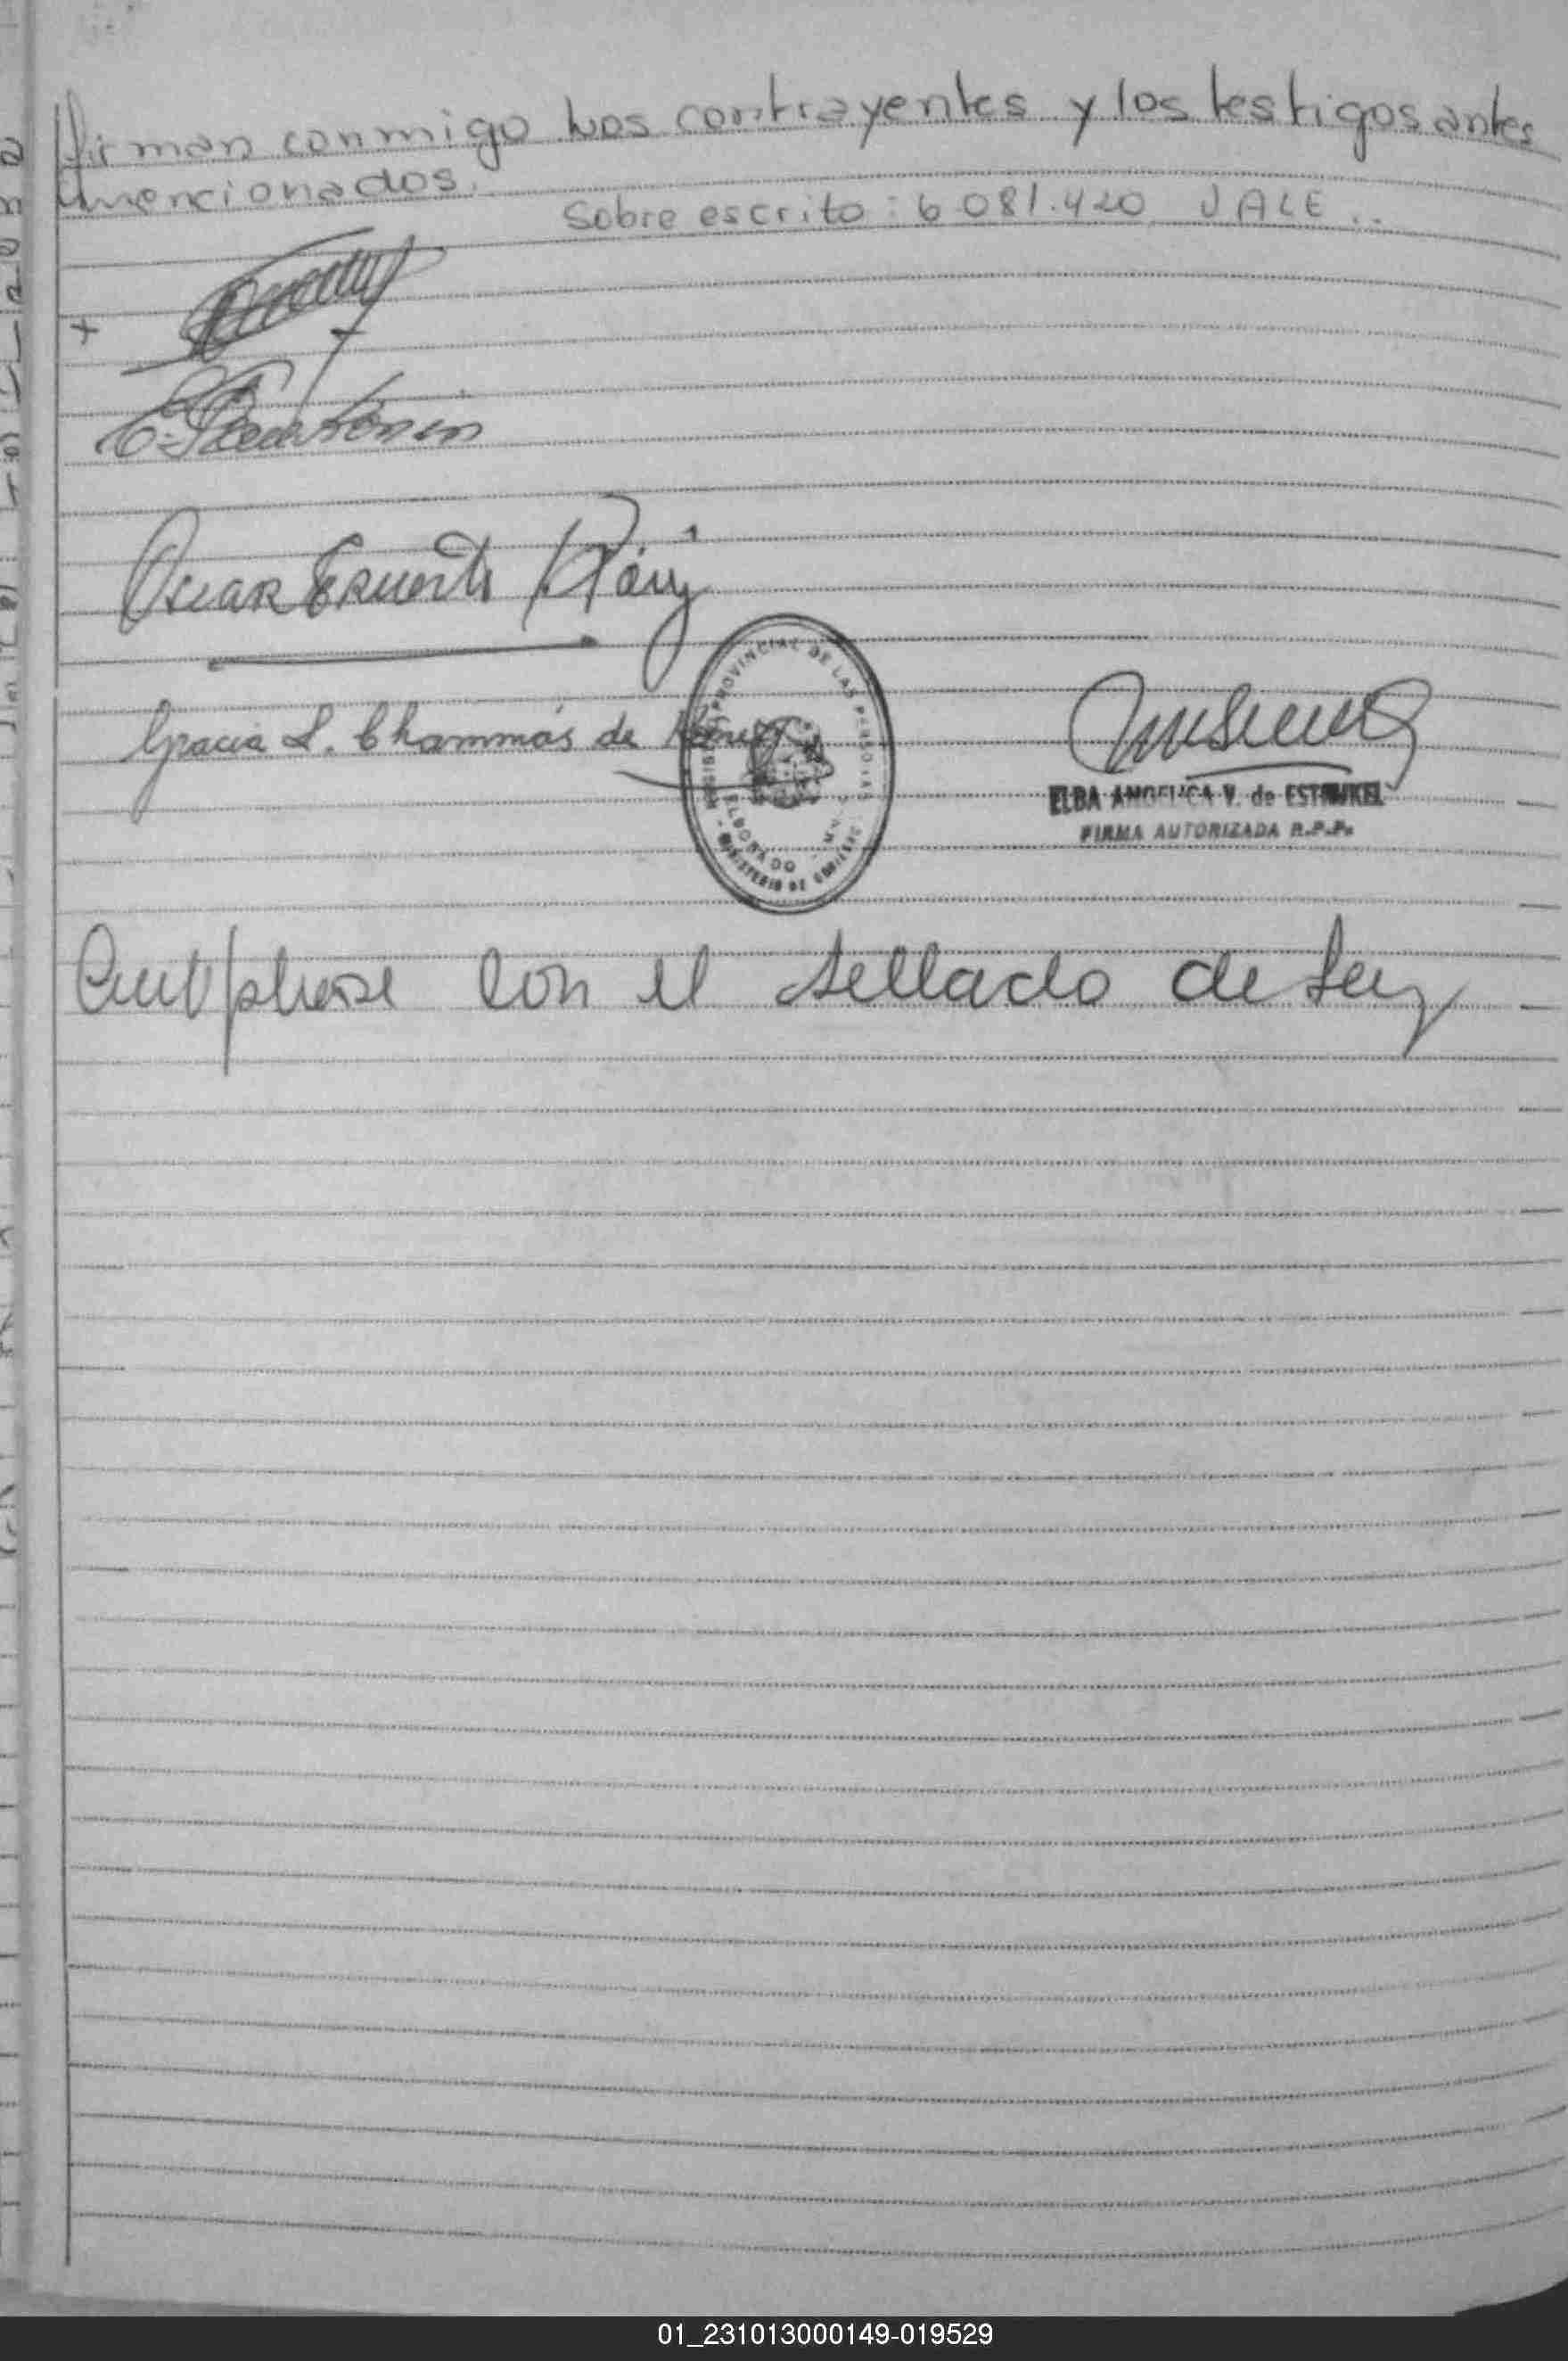 firman conmigo los contrayentes y los testigos antes
mencionados.
Sobre escrito: 6 081.420 VALE..
Oscar Ernesto
Gracia L. Chammás de
REGISTRO PROVINCIAL DE LAS PERSONAS
ELDORADO
MINISTERIO DE GOBIERNO
ELBA ANGELICA V. de
FIRMA AUTORIZADA R.P.P.
con el sellado de ley
01_231013000149-019529